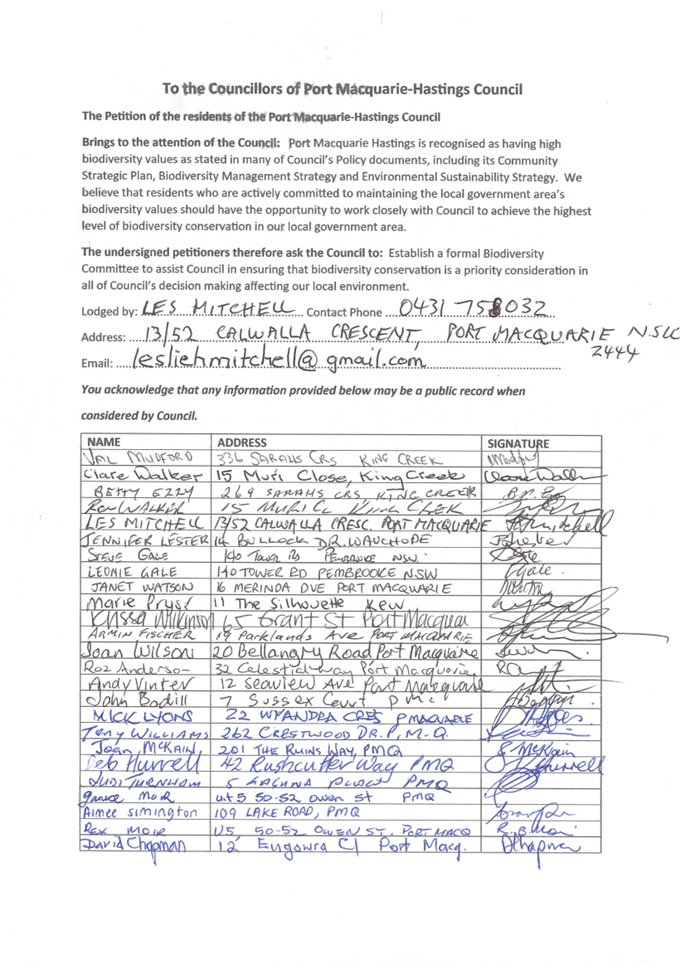 To the Councillors of Port Macquarie-Hastings Council
The Petition of the residents of the Port Macquarie-Hastings Council
Brings to the attention of the Council: Port Macquarie Hastings is recognised as having high
biodiversity values as stated in many of Council's Policy documents, including its Community
Strategic Plan, Biodiversity Management Strategy and Environmental Sustainability Strategy. We
believe that residents who are actively committed to maintaining the local government area's
biodiversity values should have the opportunity to work closely with Council to achieve the highest
level of biodiversity conservation in our local government area.
The undersigned petitioners therefore ask the Council to: Establish a formal Biodiversity
Committee to assist Council in ensuring that biodiversity conservation is a priority consideration in
all of Council's decision making affecting our local environment.
Lodged by: LES MITCHELL Contact Phone 0431 758032
Address: 13/52 CALWALLA CRESCENT, PORT MACQUARIE NSW
2444
Email: lesliehmitchell@gmail.com
You acknowledge that any information provided below may be a public record when
considered by Council.
NAME ADDRESS SIGNATURE
VAL MUDFORD 336 SARAHS CRS KING CREEK
Clare Walker 15 Muri Close, King Creek Clare Walker
BETTY EZZY 264 SARAHS CRS, KING CREEK
WALKER 15 MURI CL KING CREEK
LES MITCHELL 13/52 CALWALLA CRESC. PORT MACQUARIE
JENNIFER LESTER 14 BULLOCK DR. WAUCHOPE
STEVE GALE 140 TOWER RD PEMBROOKE NSW
LEONIE GALE 140 TOWER RD PEMBROOKE NSW
JANET WATSON 16 MERINDA DVE PORT MACQUARIE
Marie 11 The Silhouette Kew
Wilkinson 65 Grant St Port Macquar
ARMIN FISCHER 19 Parklands Ave PORT MACQUARIE
Joan Wilson 20 Bellangry Road Port Macquarie
Roz Anderson 32 Celestial way Port Macquarie
Andy Vinter 12 Seaview Ave Port Macquarie
John 7 Sussex Court P Mc
MICK LYONS 22 WYANDRA CRES PMACQUARIE
Tony WILLIAMS 262 CRESTWOOD DR. P.M.Q.
Joan McKAIN 201 THE RUINS WAY, PMQ McKain
Deb Hurrell 42 Rushcutter Way PMQ Hurrell
JUDI TURNHAM 5 LAGUNA PLACE PMQ
Moir unt 5 50-52 owen st PMQ
Aimee Simington 109 LAKE ROAD, PMQ
REX MOIR U5, 50-52 OWEN ST. PORT MACQ
David Chapman 12 Eugowra Cl Port Macq. DChapman